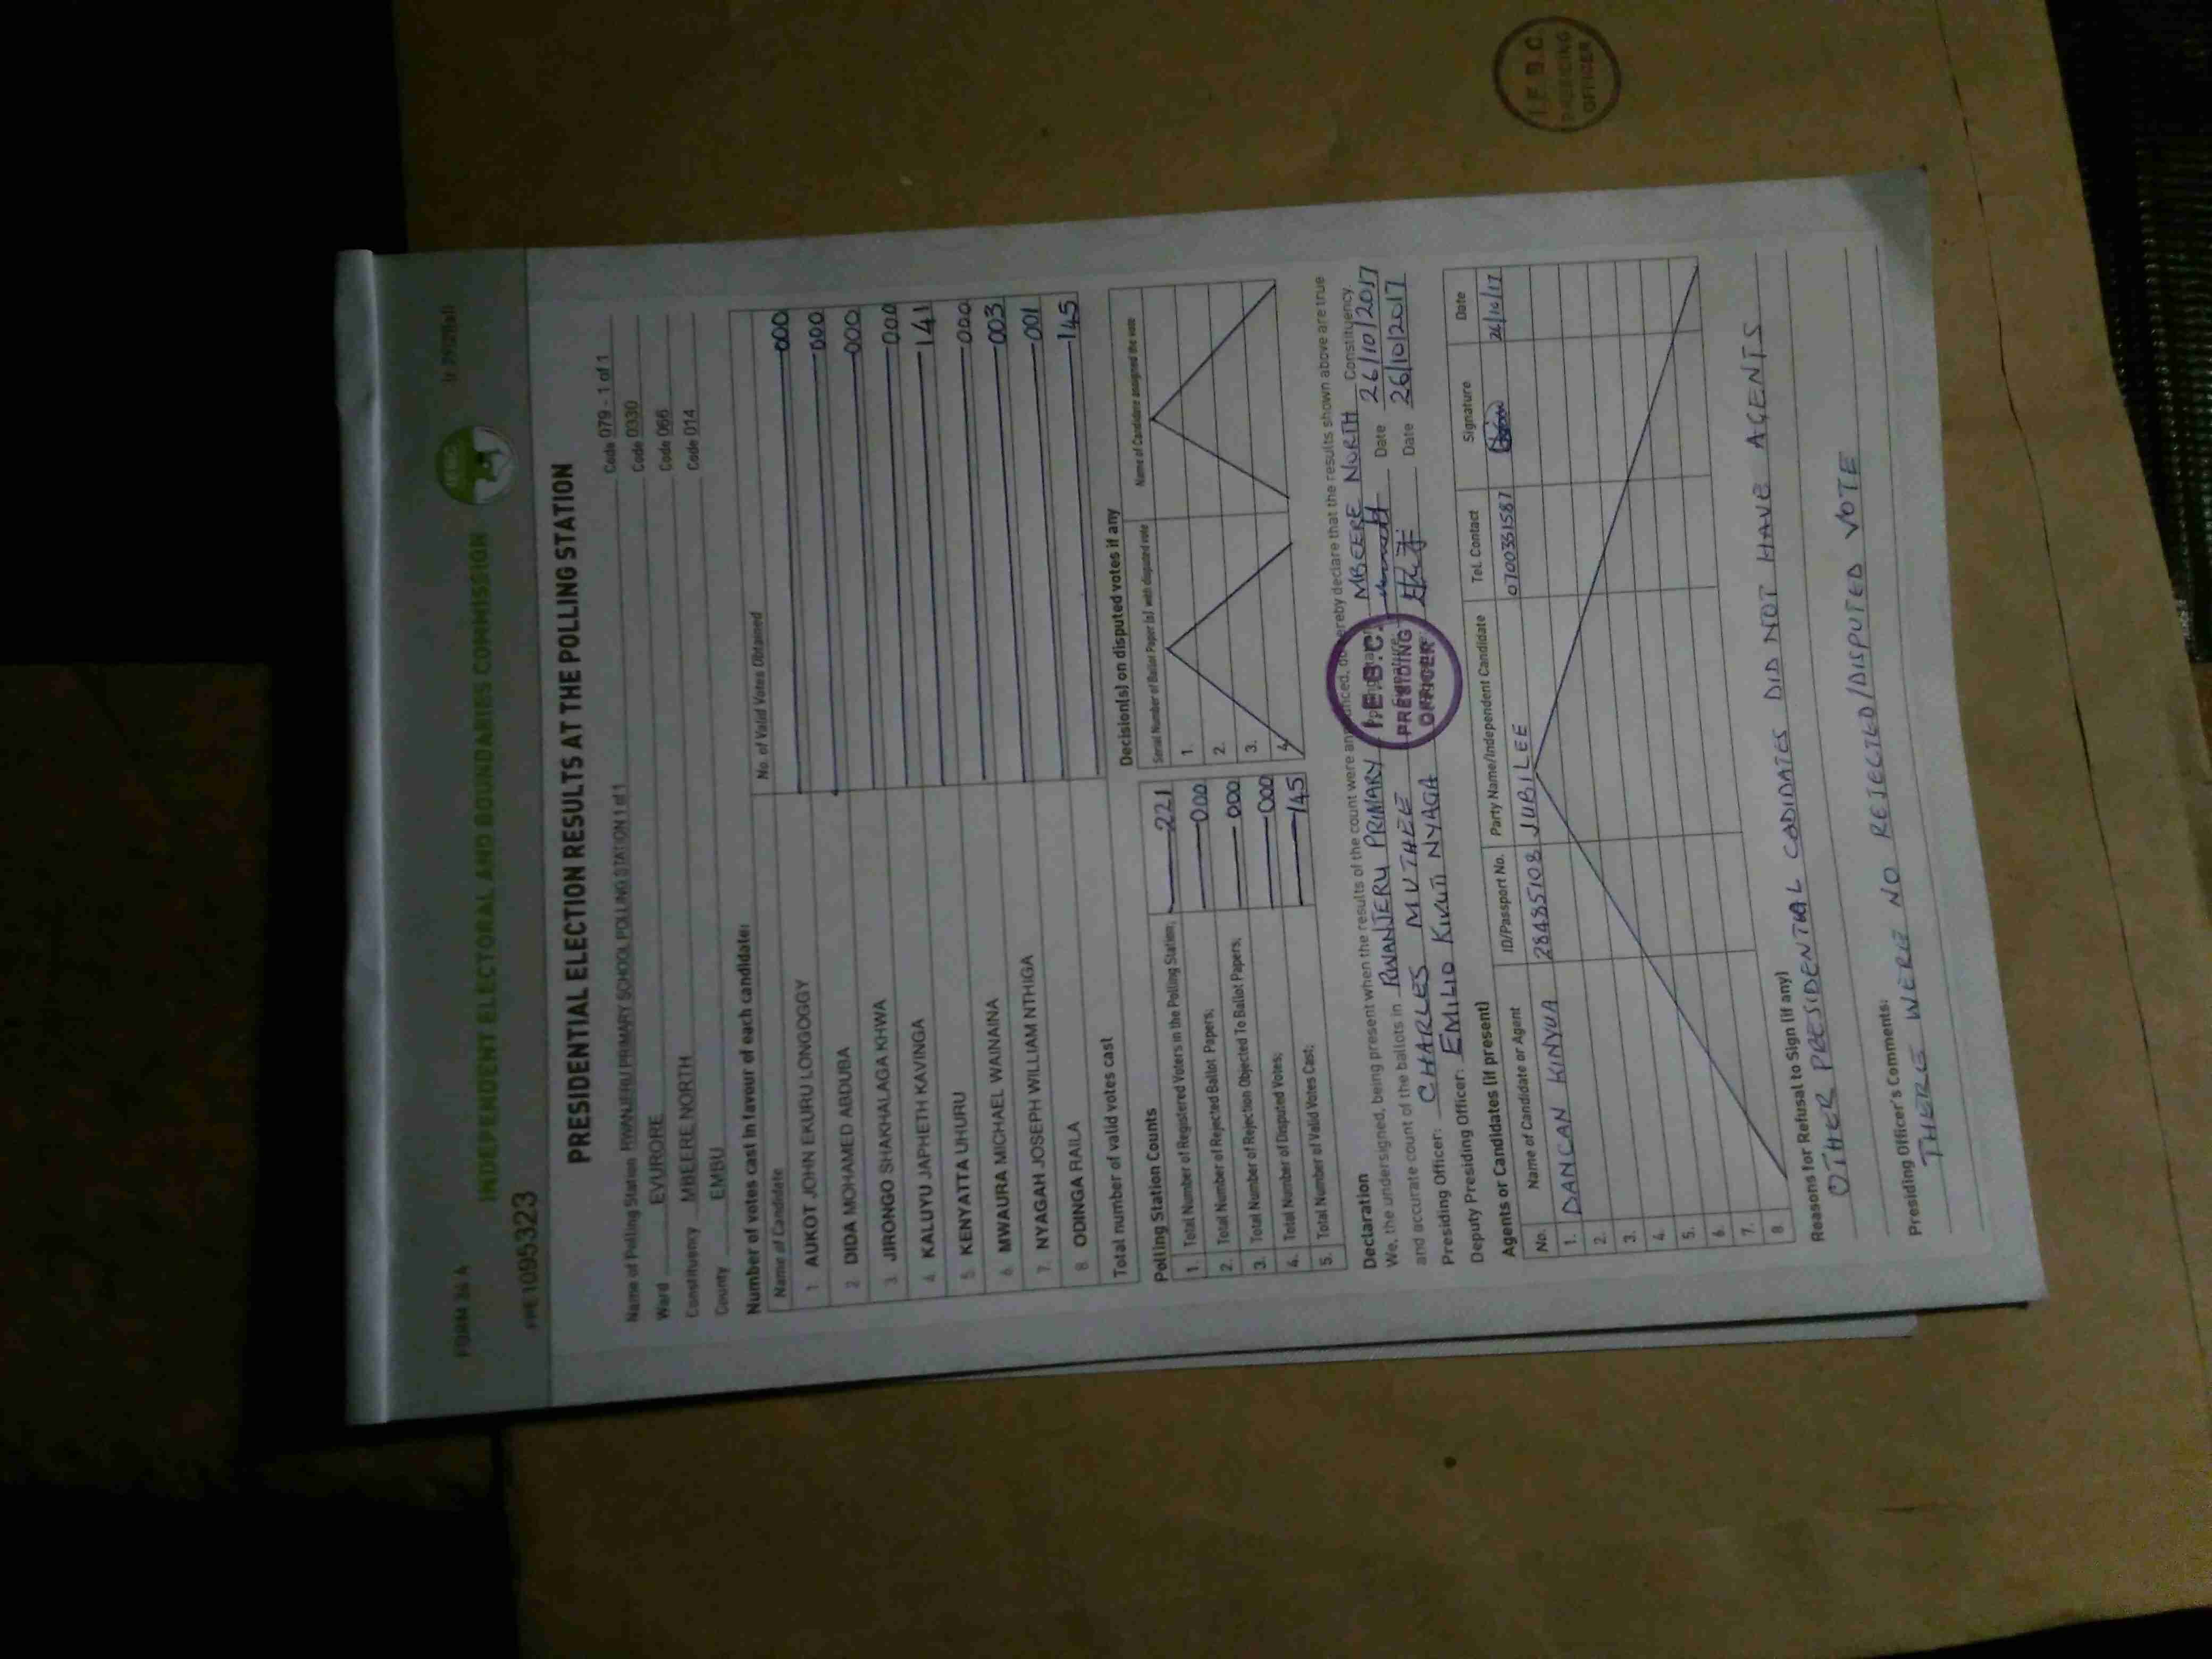 FORM 34 A
INDEPENDENT ELECTORAL AND BOUNDARIES COMMISSION
IEBC
1095323
PRESIDENTIAL ELECTION RESULTS AT THE POLLING STATION
Name of Polling Station RWANJERU PRIMARY SCHOOL POLLING STATION 1 of 1 Code 079 - 1 of 1
Ward EVURORE Code 0330
Constituency MBEERE NORTH Code 066
County EMBU Code 014
Number of votes cast in favour of each candidate:
Name of Candidate No. of Valid Votes Obtained
1 AUKOT JOHN EKURU LONGOGGY 000
2 DIDA MOHAMED ABDUBA 000
3. JIRONGO SHAKHALAGA KHWA 000
4. KALUYU JAPHETH KAVINGA 000
5 KENYATTA UHURU 141
6. MWAURA MICHAEL WAINAINA 000
7. NYAGAH JOSEPH WILLIAM NTHIGA 003
8. ODINGA RAILA 001
Total number of valid votes cast 145
Polling Station Counts
1. Total Number of Registered Voters in the Polling Station; 221
2. Total Number of Rejected Ballot Papers; 000
3. Total Number of Rejection Objected To Ballot Papers; 000
4. Total Number of Disputed Votes; 000
5. Total Number of Valid Votes Cast; 145
Decision(s) on disputed votes if any
Serial Number of Ballot Paper (s) with disputed vote Name of Candidate assigned the vote
1.
2.
3.
4.
Declaration
We, the undersigned, being present when the results of the count were announced, do hereby declare that the results shown above are true
and accurate count of the ballots in RWANJERU PRIMARY MBEERE NORTH Constituency.
Presiding Officer: CHARLES MUTHEE Date 26/10/2017
Deputy Presiding Officer: EMILIO KIVUTI NYAGA Date 26/10/2017
I.E.B.C.
PRESIDING
OFFICER
Agents or Candidates (if present)
No. Name of Candidate or Agent ID/Passport No. Party Name/Independent Candidate Tel. Contact Signature Date
1. DANCAN KINYUA 28485108 JUBILEE 0700351587 26/10/17
2.
3.
4.
5.
6.
7.
8
Reasons for Refusal to Sign (if any)
OTHER PRESIDENTIAL CADIDATES DID NOT HAVE AGENTS
Presiding Officer's Comments:
THERE WERE NO REJECTED/DISPUTED VOTE
I.E.B.C.
PRESIDING
OFFICER